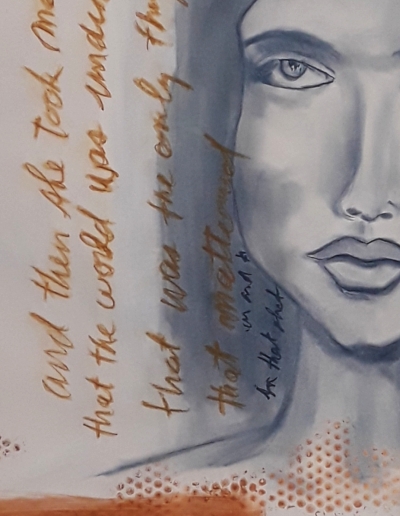 and then she took me
that the world was under
that was the only th
that mattered
in that